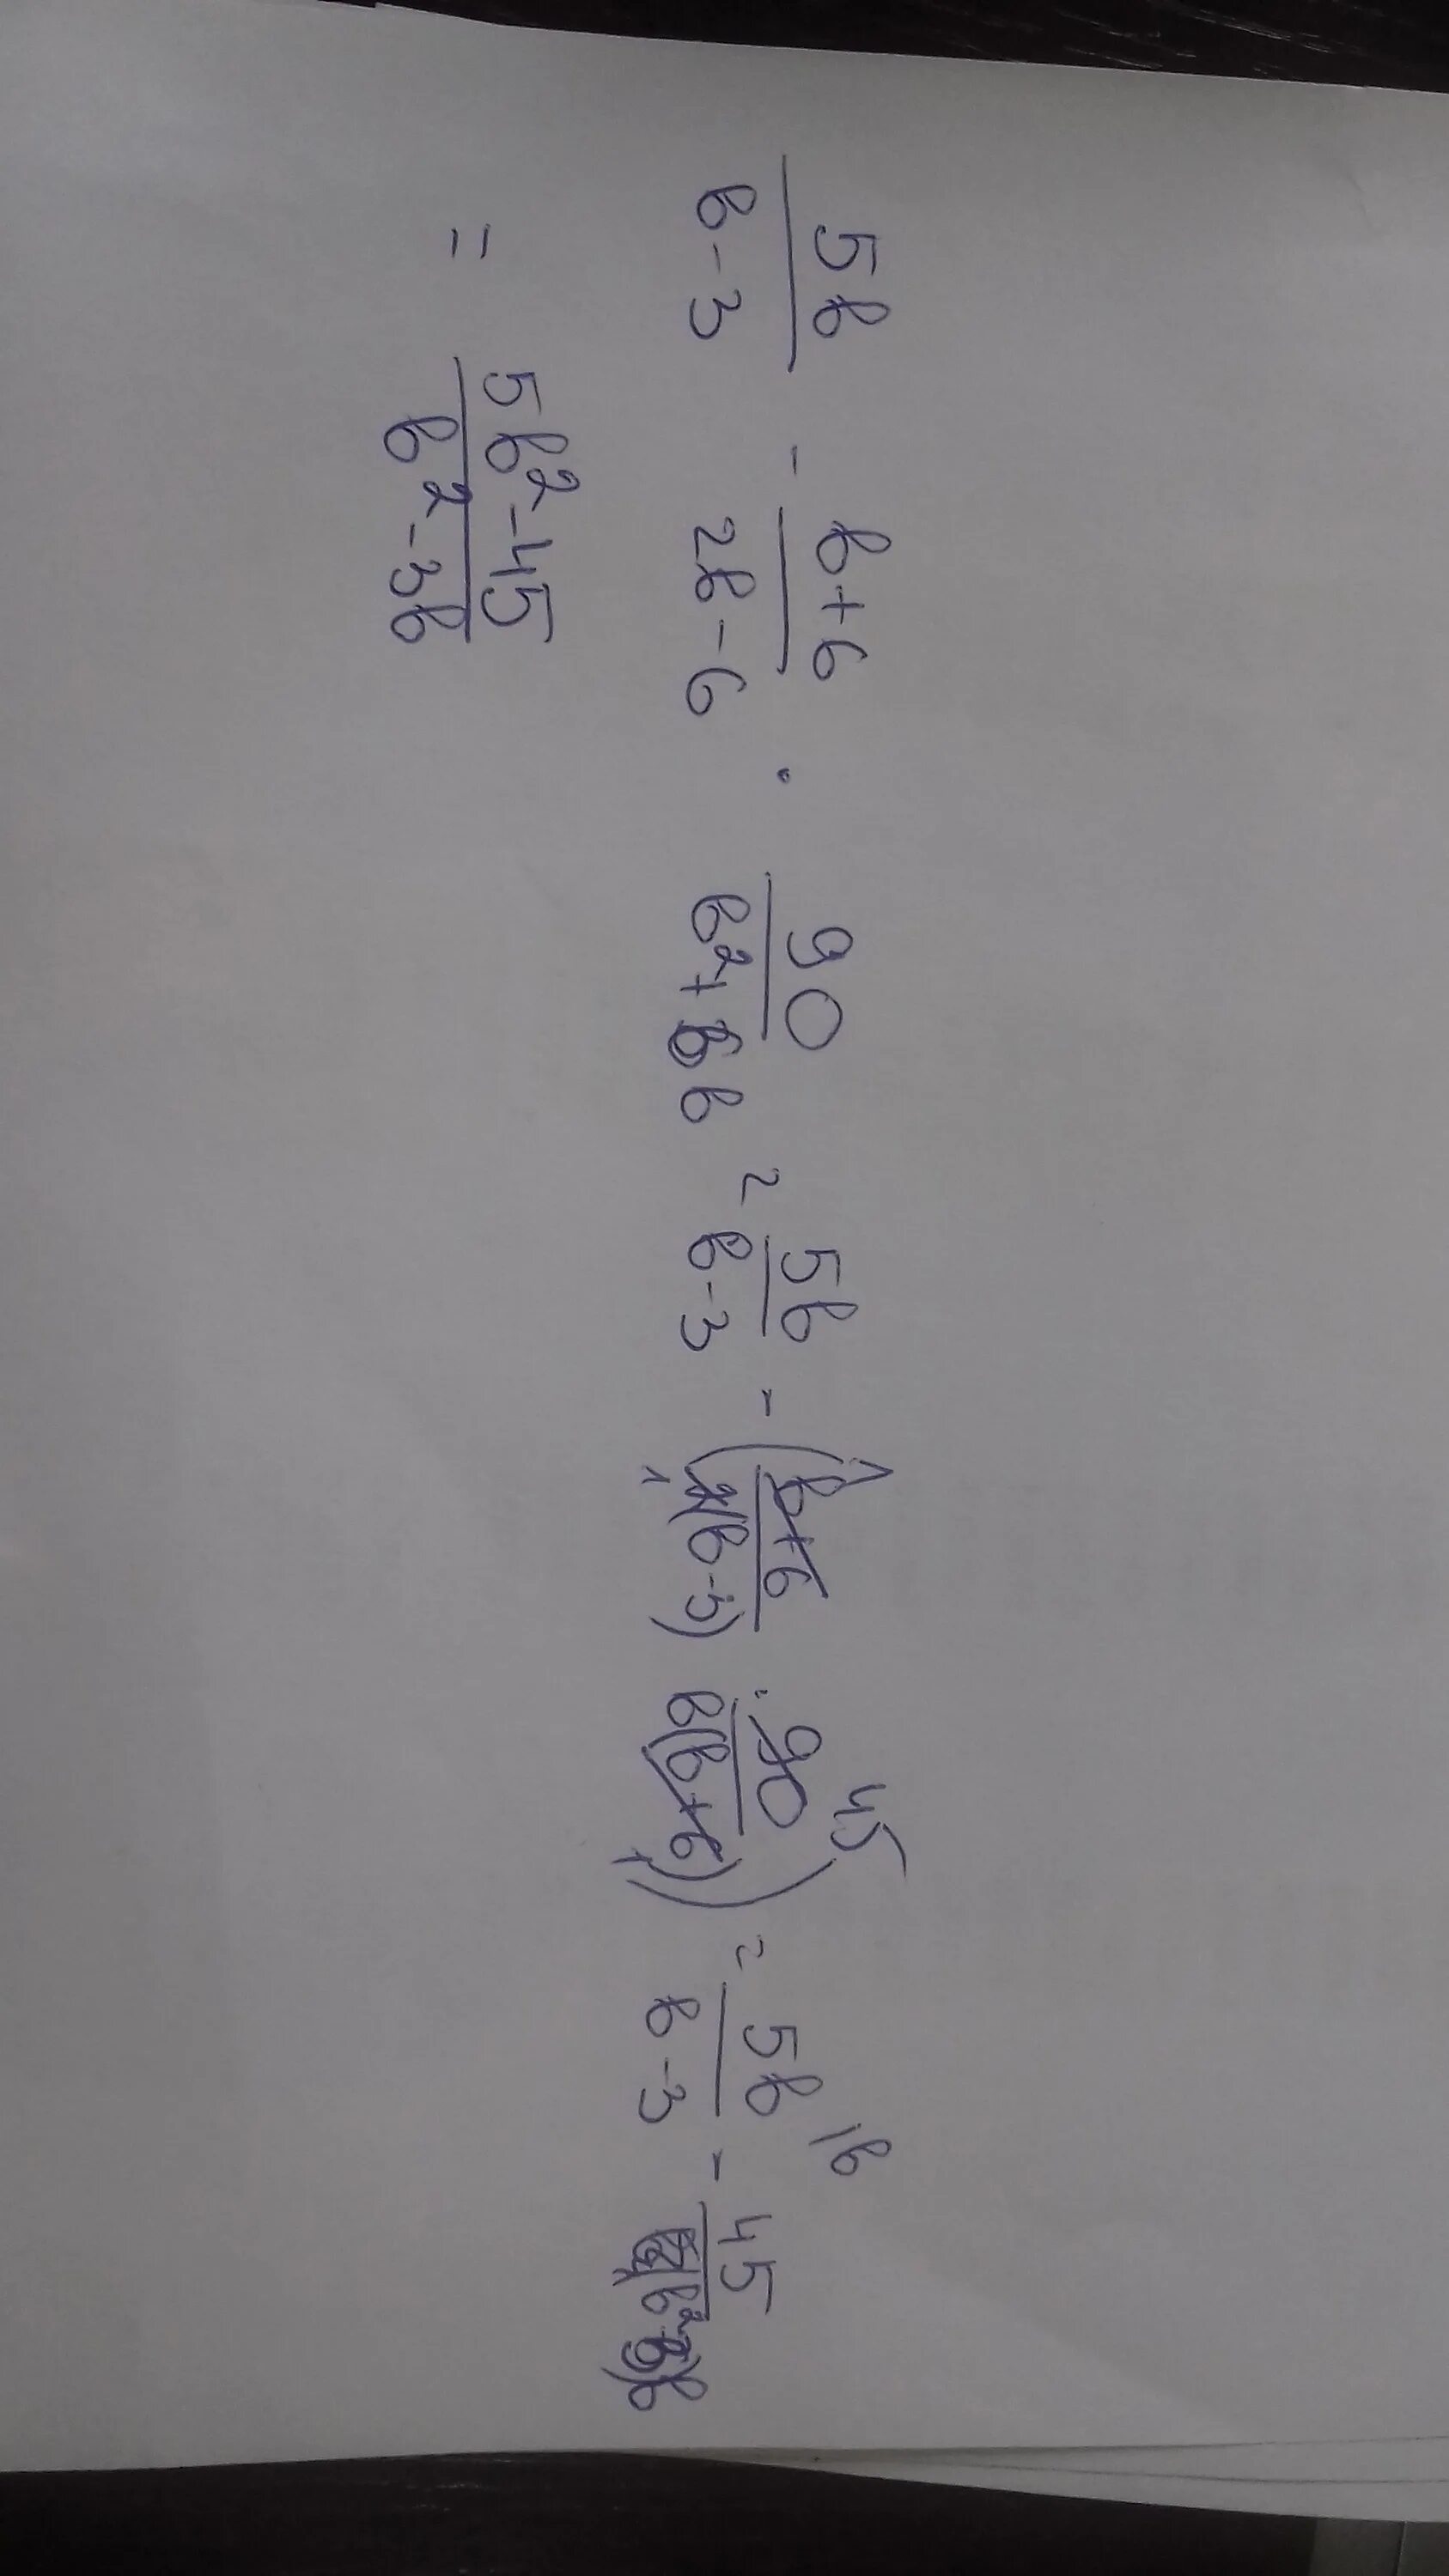 5b/(b-3) - (b+6)/(2b-6) · 90/(b²+6b) = 5b/(b-3) - ((b+6)/(2(b-3)) · 90/(b(b+6))) = 5b/(b-3) - 45/(b²-3b)
= (5b²-45)/(b²-3b)